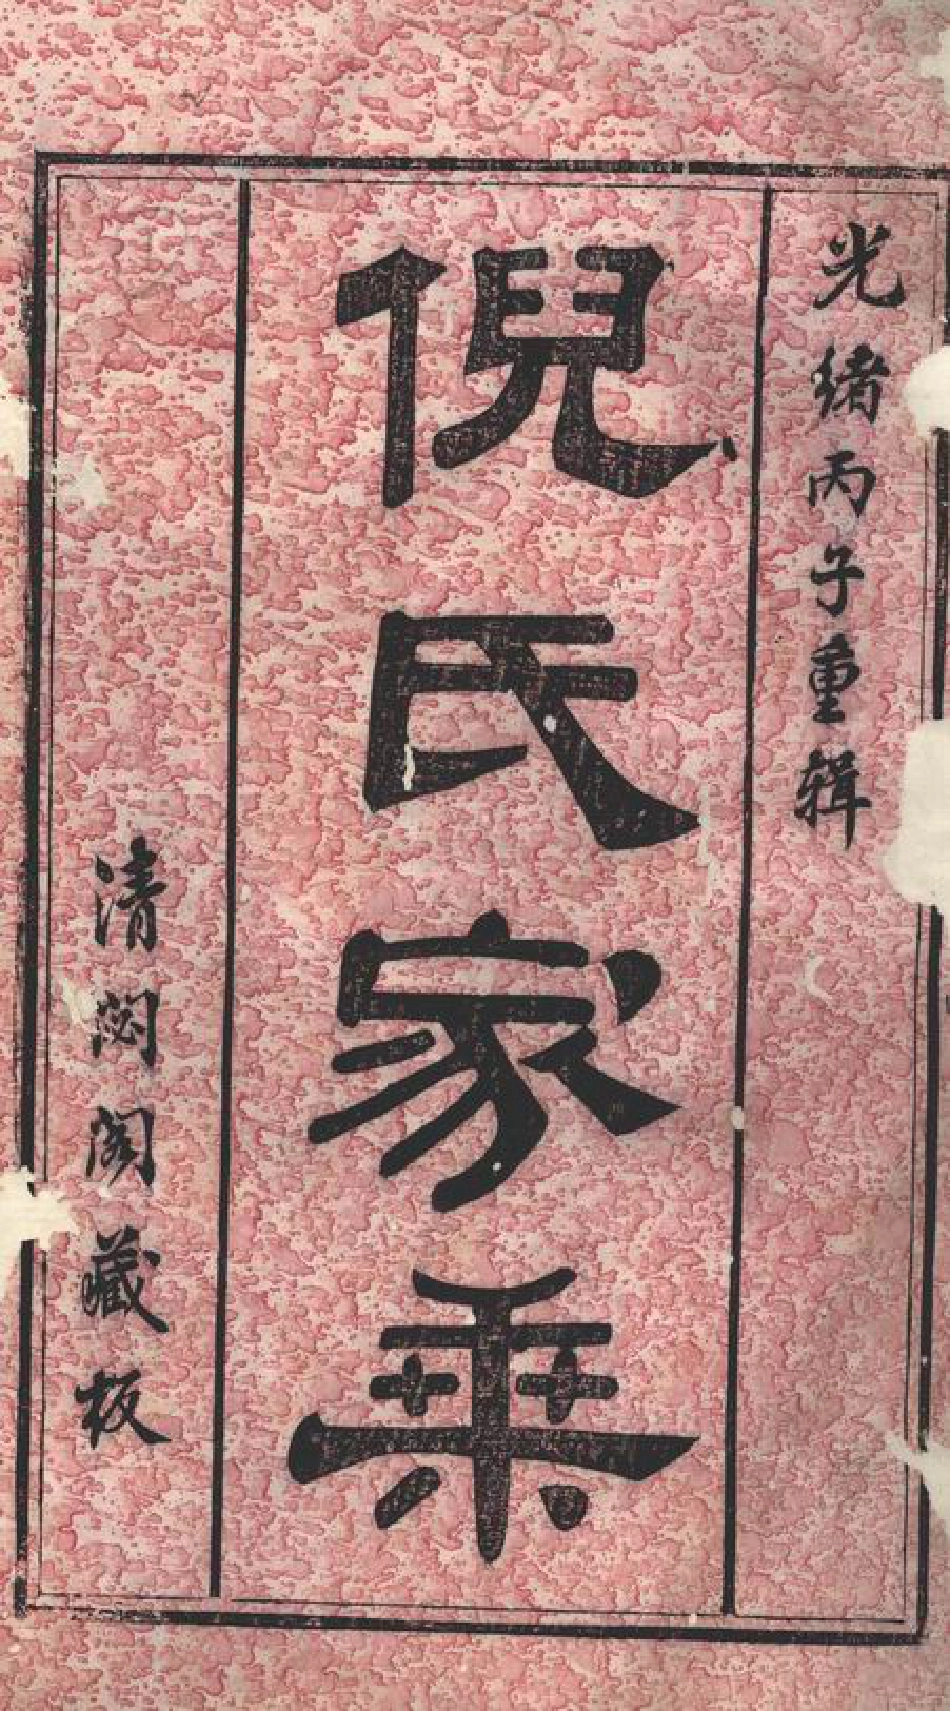 光緒丙子重輯
倪氏家乘
清閟閣藏板